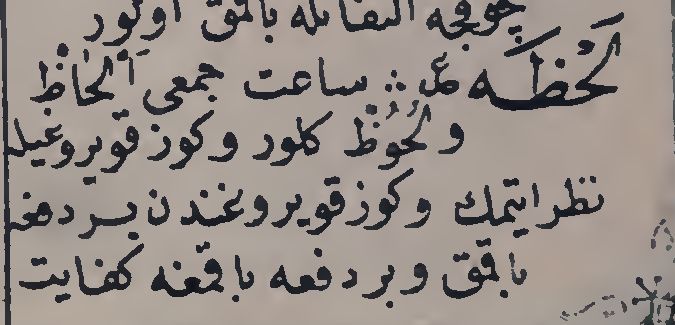 چوقجه التفاتله باقمق اولور
لَحْظَه ع ساعت جمعى اَلْحَاظْ
و لُحُوظْ كلور و كوز قويروغيله
نظر ايتمك و كوز قويروغندن بر دفعه
باقمق و بر دفعه باقمغه كفايت